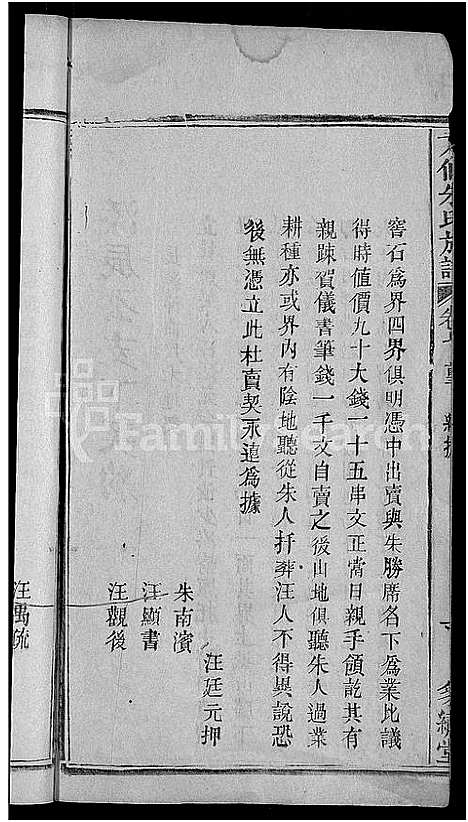 修朱氏族譜
窖石爲界四界俱明憑中出賣與朱勝席名下爲業比議
得時值價九十大錢一十五串文正當日親手領訖其有
親踈賀儀書筆錢一千文自賣之後山地俱聽朱人過業
耕種亦或界內有陰地聽從朱人扦葬汪人不得異說恐
後無憑立此杜賣契永遠爲據
汪廷元押
朱南濱
汪顯書
汪觀後
汪禹疏
FamilySearch